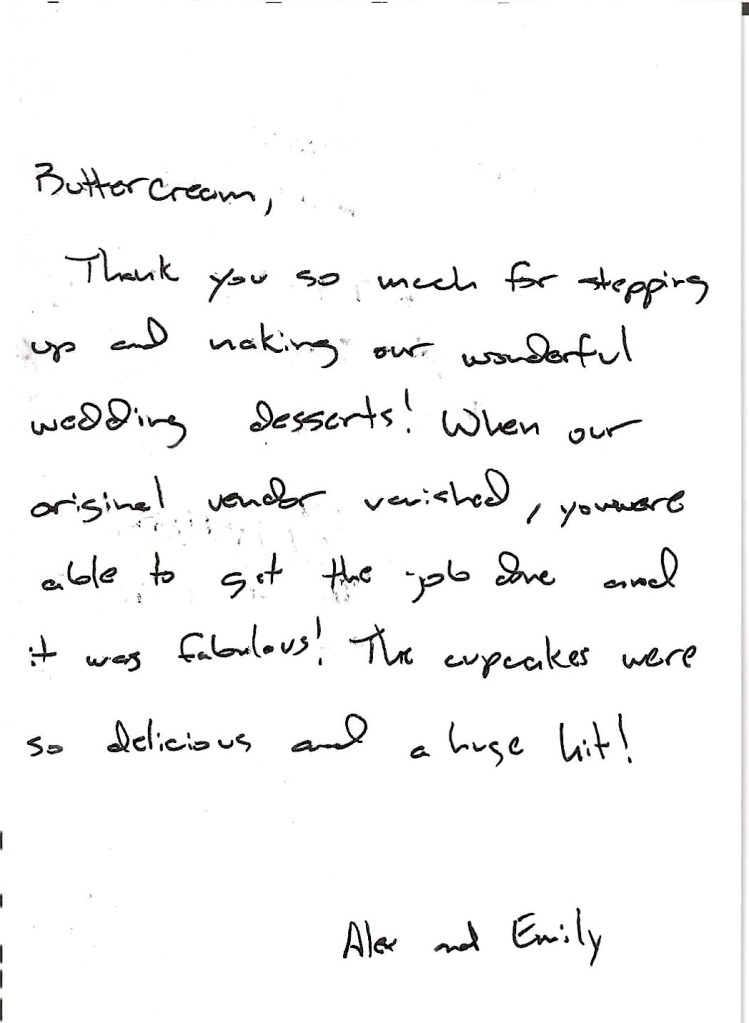 Buttercream,
Thank you so much for stepping
up and making our wonderful
wedding desserts! When our
original vendor vanished, you were
able to get the job done and
it was fabulous! The cupcakes were
so delicious and a huge hit!
Alex and Emily